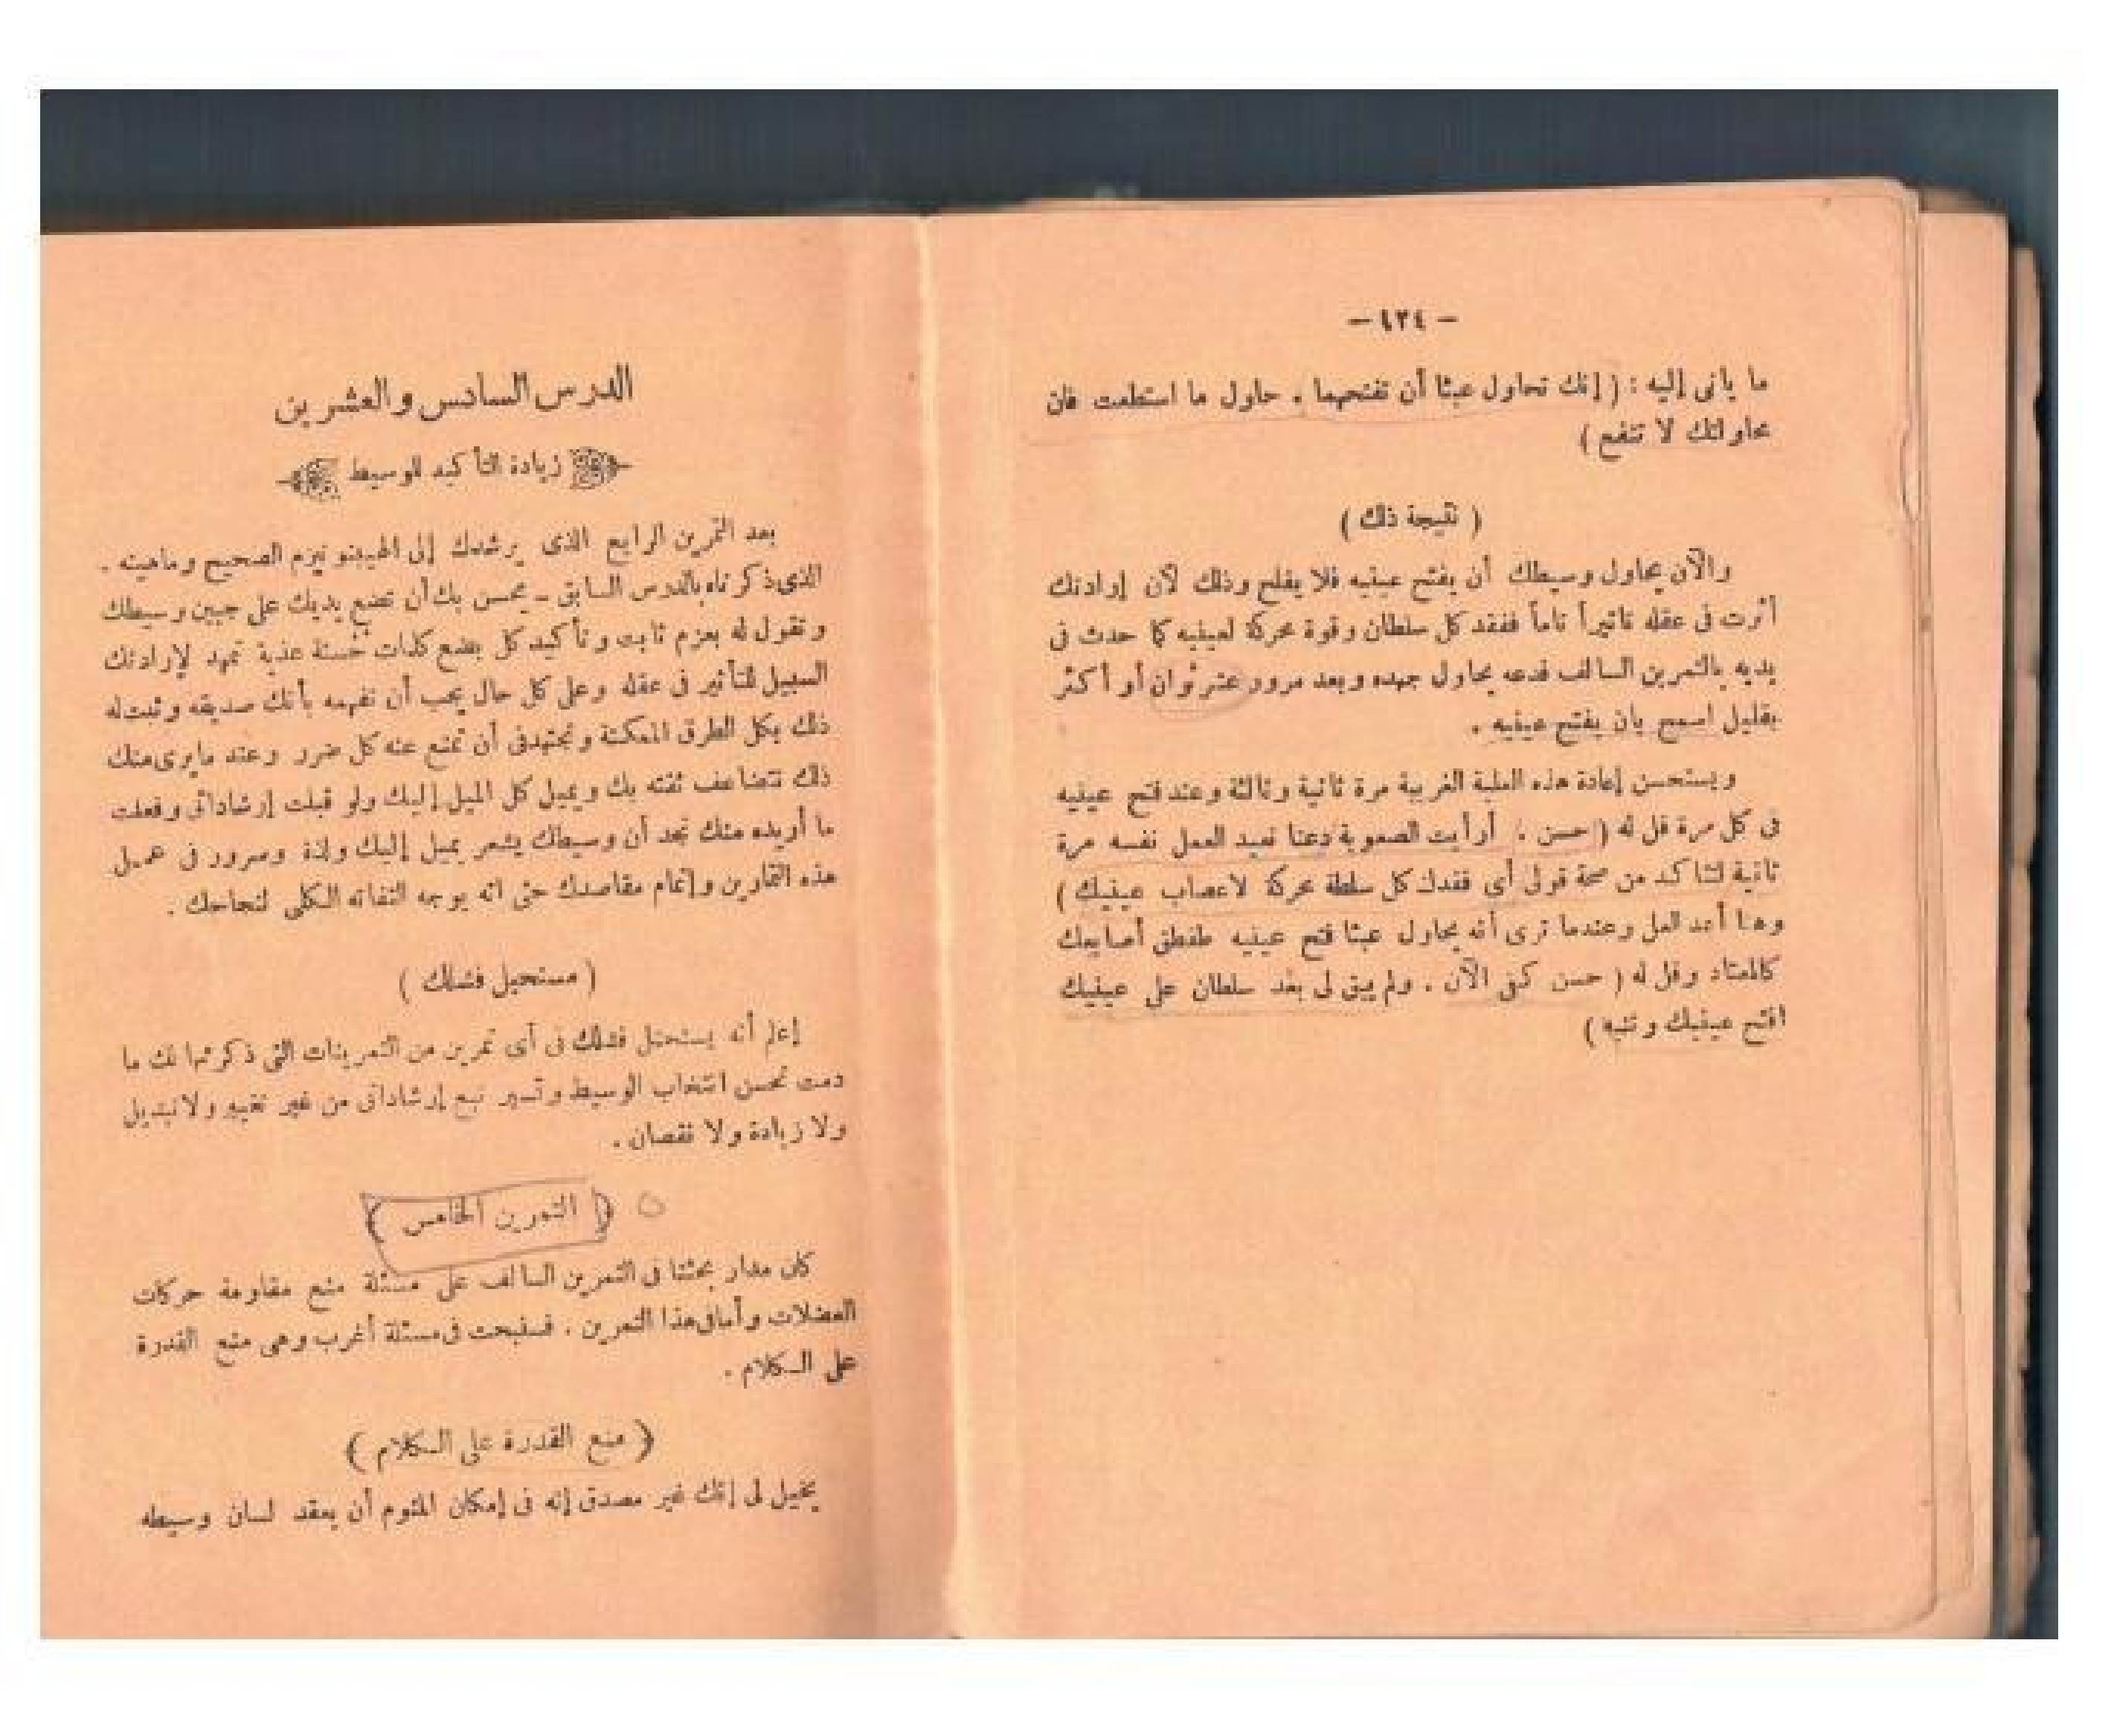 — ٤٣٤ —
ما يأتى إليه : ( إنك تحاول عبثا أن تفتحهما . حاول ما استطعت فان
محاولتك لا تنفع )
( نتيجة ذلك )
والآن يحاول وسيطك أن يفتح عينيه فلا يفلح وذلك لأن إرادتك
أثرت فى عقله تاثيراً تاماً ففقد كل سلطان وقوة محركة لعينيه كما حدث فى
يديه بالتمرين السالف فدعه يحاول جهده وبعد مرور عشر ثوان أو أكثر
بقليل اسمح بان يفتح عينيه .
ويستحسن إعادة هذه العملية الغريبة مرة ثانية وثالثة وعند فتح عينيه
فى كل مرة قل له ( حسن . أرأيت الصعوبة دعنا نعيد العمل نفسه مرة
ثانية لتتأكد من صحة قولى أى فقدك كل سلطة محركة لاعصاب عينيك )
وهنا أعد العمل وعندما ترى أنه يحاول عبثا فتح عينيه طقطق أصابعك
كالمعتاد وقل له ( حسن كفى الآن . ولم يبق لى بعد سلطان على عينيك
افتح عينيك وتنبه )
الدرس السادس والعشرين
زيادة التأكيد للوسيط
بعد التمرين الرابع الذى يرشدك إلى الهيبنوتيزم الصحيح وماهيته .
الذى ذكرناه بالدرس السابق ـ يحسن بك أن تضع يديك على جبين وسيطك
وتقول له بعزم ثابت وتأكيد كل بضع كلمات حسنة عذبة تمهد لإرادتك
السبيل للتأثير فى عقله وعلى كل حال يجب أن تفهمه بأنك صديقه وتثبت له
ذلك بكل الطرق الممكنة وتجتهد فى أن تمنع عنه كل ضرر وعند ما يرى منك
ذلك تتضاعف ثقته بك ويميل كل الميل إليك ولو قبلت إرشاداتى وفعلت
ما أريده منك تجد أن وسيطك يشعر بميل إليك ولذة وسرور فى عمل
هذه التمارين وإتمام مقاصدك حتى انه يوجه التفاته الكلى لنجاحك .
( مستحيل فشلك )
إعلم أنه يستحيل فشلك فى أى تمرين من التمرينات التى ذكرتها لك ما
دمت تحسن انتخاب الوسيط وتسير تبع إرشاداتى من غير تغيير ولا تبديل
ولا زيادة ولا نقصان .
( التمرين الخامس )
كان مدار بحثنا فى التمرين السالف على مسئلة منع مقاومة حركات
العضلات وأما فى هذا التمرين . فسنبحث فى مسئلة أغرب وهى منع القدرة
على الكلام .
( منع القدرة على الكلام )
يخيل لى إنك غير مصدق إنه فى إمكان المنوم أن يعقد لسان وسيطه